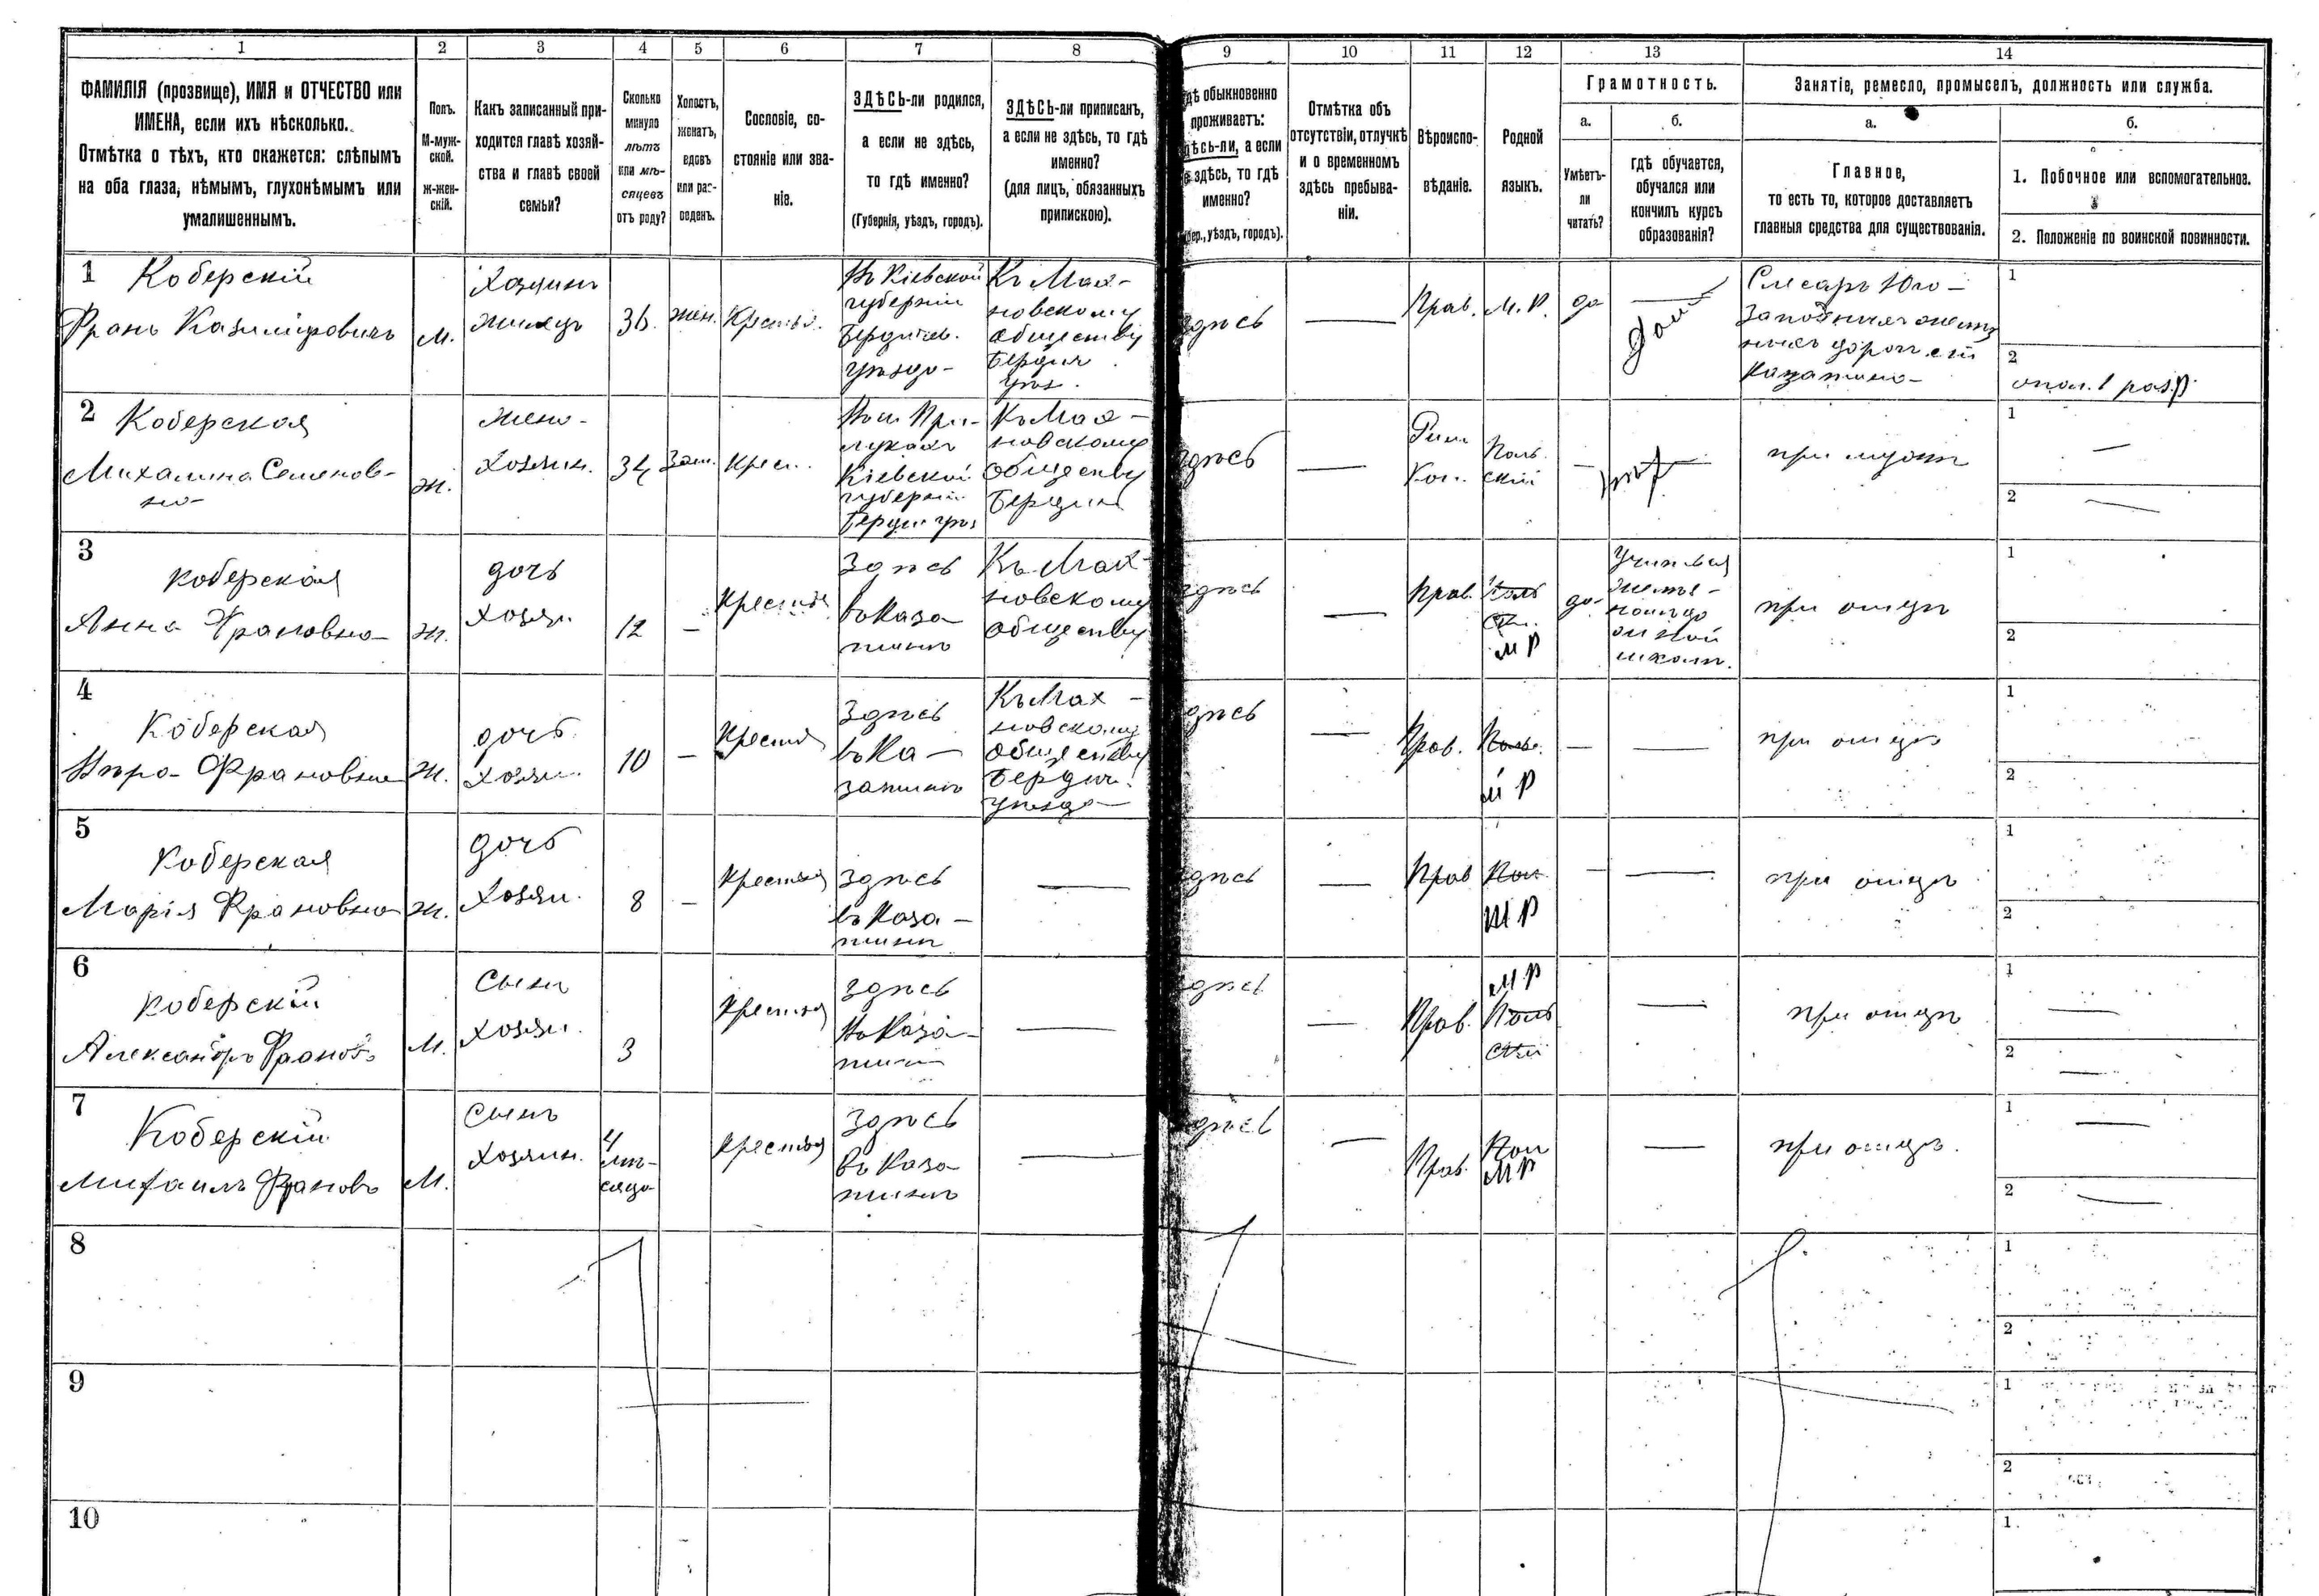 1 2 3 4 5 6 7 8 9 10 11 12 13 14
ФАМИЛІЯ (прозвище), ИМЯ и ОТЧЕСТВО или
ИМЕНА, если ихъ нѣсколько.
Отмѣтка о тѣхъ, кто окажется: слѣпымъ
на оба глаза, нѣмымъ, глухонѣмымъ или
умалишеннымъ.
Полъ.
М-муж-
ской.
ж-жен-
скій.
Какъ записанный при-
ходится главѣ хозяй-
ства и главѣ своей
семьи?
Сколько
минуло
лѣтъ
или мѣ-
сяцевъ
отъ роду?
Холостъ,
женатъ,
вдовъ
или раз-
веденъ.
Сословіе, со-
стояніе или зва-
ніе.
ЗДѢСЬ-ли родился,
а если не здѣсь,
то гдѣ именно?
(Губернія, уѣздъ, городъ).
ЗДѢСЬ-ли приписанъ,
а если не здѣсь, то гдѣ
именно?
(для лицъ, обязанныхъ
припискою).
дѣ обыкновенно
проживаетъ:
дѣсь-ли, а если
здѣсь, то гдѣ
именно?
бер., уѣздъ, городъ).
Отмѣтка объ
отсутствіи, отлучкѣ
и о временномъ
здѣсь пребыва-
ніи.
Вѣроиспо-
вѣданіе.
Родной
языкъ.
Грамотность.
а.
Умѣетъ-
ли
читать?
б.
гдѣ обучается,
обучался или
кончилъ курсъ
образованія?
Занятіе, ремесло, промыселъ, должность или служба.
а.
Главное,
то есть то, которое доставляетъ
главныя средства для существованія.
б.
1. Побочное или вспомогательное.
2. Положеніе по воинской повинности.
1 Коберскій
Франъ Казиміровичъ
М.
Хозяинъ
жилецъ
36.
жен.
Крестья.
Въ Кіевской
губерніи
Бердичев.
уѣзда
Къ Мах-
новскому
обществу
Бердич
уѣз.
здѣсь
—
Прав.
М. Р.
да
дом
Слесарь Юго-
Западныхъ желѣз
ныхъ дорог. ст
Казатина
1
2
опол. 1 разр
2 Коберская
Михалина Семенов-
на
ж.
жена
хозяин.
34
Зам.
крес.
Въ м. При-
лукахъ
Кіевской
губерніи
Бердич уѣз
Къ Мах-
новскому
обществу
Бердич
здѣсь
—
Рим
Кат.
Поль
скій
—
при мужѣ
1 —
2 —
3 Коберская
Анна Франовна
ж.
дочь
хозяи.
12
—
Крестья
Здѣсь
въ Каза
тинѣ
Къ Мах-
новскому
обществу
здѣсь
—
Прав.
М Р
да
Учитьея
желѣз-
нойдо
рожной
школѣ.
при отцѣ
1
2
4 Коберская
Вѣра Франовна
ж.
дочь
хозяи.
10
—
Крестья
Здѣсь
въ Ка-
затинѣ
Къ Мах-
новскому
обществу
Бердич.
уѣзда
дѣсь
—
Прав.
Поль.
М Р
—
—
при отцѣ
1
2
5 Коберская
Марія Франовна
ж.
дочь
хозяи.
8
—
Крестья
Здѣсь
въ Каза-
тинѣ
—
дѣсь
—
Прав
Пол
М Р
—
—
при отцѣ
1
2
6 Коберскій
Александръ Франовъ
М.
Сынъ
хозяи.
3
Крестья
здѣсь
Въ Каза-
тинѣ
—
дѣсь
—
Прав.
М Р
Поль
скій
—
при отцѣ
1 —
2 —
7 Коберскій
Михаилъ Франовъ
М.
Сынъ
хозяин.
4
мѣ-
сяца
Крестья
Здѣсь
въ Каза
тинѣ
—
дѣсь
—
Прав.
Пол
М Р
—
при отцѣ.
1 —
2 —
8
1
2
9
1
2
10
1